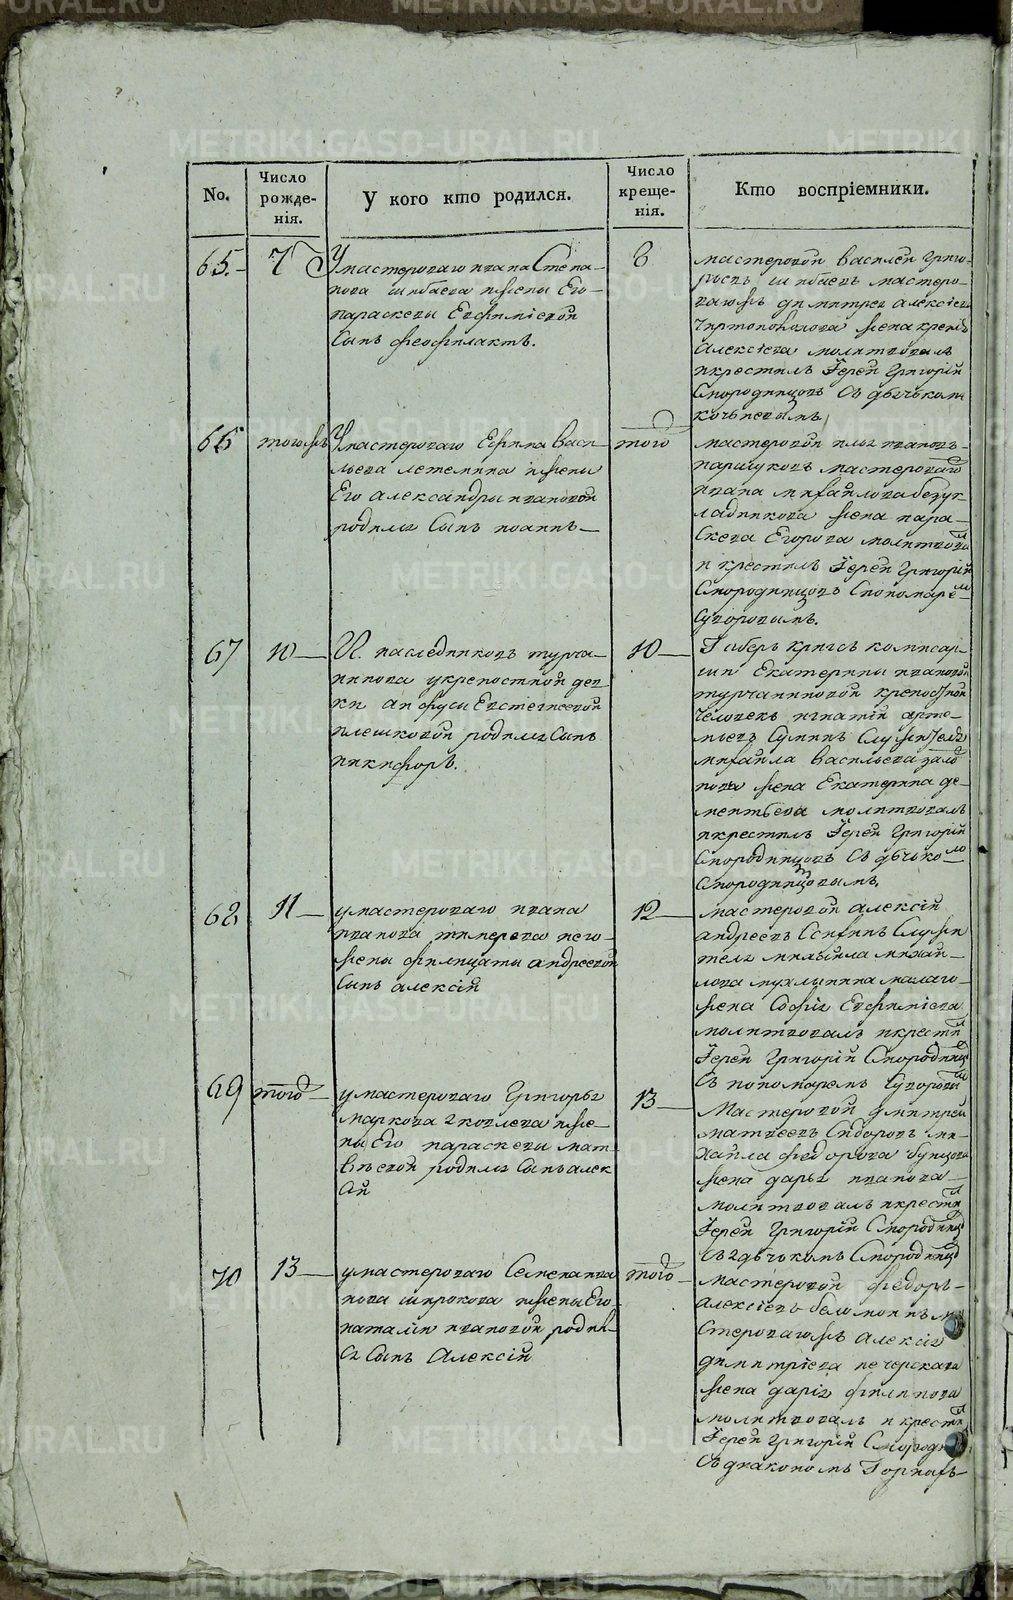 METRIKI.GASO-URAL.RU
No.
Число рожденія.
У кого кто родился.
Число крещенія.
Кто воспріемники.
65.
7
У мастероваго ивана Степа-
нова шибаева и жены Его
параскевы Евфиміевой
Сынъ феофилактъ.
8
мастеровой василей григо-
рьевъ шибаевъ мастеро-
ваго жъ димитрея алексіева
жена
Алексіева молитвовалъ
и крестилъ Іерей григорій
Смородинцовъ Съ дьячкомъ
66
тогожъ
У мастероваго Ефима Васи-
льева летемина и жены
Его александры ивановой
родился Сынъ иоаннъ
того
мастеровой илья ивановъ
паршуковъ мастероваго
ивана михайлова безук-
ладникова жена пара-
скева Егорова молитвовалъ
и крестилъ Іерей григорій
Смородинцовъ Спономаремъ
Суворовымъ.
67
10
И. наследниковъ турча-
нинова у крепостной дев-
ки анфусы Евстегнеевой
плешковой родился Сынъ
никифоръ.
10
Гиберъ кригсъ комисар-
ши Екатерины ивановой
турчаниновой крепостной
человекъ игнатій арте-
мьевъ Служителя
михаила васильева
жена Екатерина де-
ментьева молитвовалъ
и крестилъ Іерей григорій
Смородинцовъ Съ дьячкомъ
Смородинцовымъ.
68
11
у мастероваго ивана
иванова и его
жены филицаты андреевой
Сынъ алексій
12
мастеровой алексій
андреевъ Служи
тель михаила михай-
лова малаго
жена Софія Евфиміева
молитвовалъ и крестилъ
Іерей григорій Смородинцовъ
Съ пономаремъ Суворовымъ
69
того
у мастероваго григорья
маркова и же-
ны Его параскевы мат-
веевой родился Сынъ алек
сій
13
Мастеровой дмитрей
матвеевъ Сидоровъ ми-
хаила федорова
жена дарья иванова
молитвовалъ и крестилъ
Іерей григорій Смородинцовъ
Съ дьячкомъ Смородинцовымъ
70
13
у мастероваго Семена ива
нова широкова и жены Его
наталіи ивановой родил-
ся Сынъ Алексій
того
мастеровой федоръ
алексіевъ ма-
стероваго жъ алексія
димитріева печерскаго
жена дарія филипова
молитвовалъ и крестилъ
Іерей григорій Смородинцовъ
Съ диакономъ